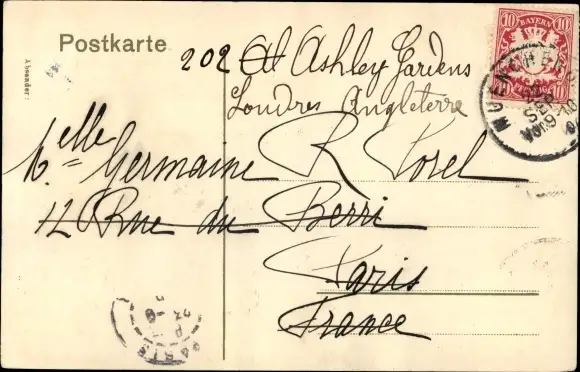 Postkarte
Absender:
202 A Ashley Gardens
Londres Angleterre
Melle Germaine R
12 Rue du Berri
Paris
France
10 BAYERN 10
MUENCHEN
PARIS